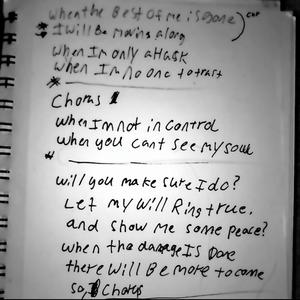 when the Best of me is gone
I will Be moving along
when I'm only a Husk
when I'm no one to trust
Chorus 1
when I'm not in control
when you cant see my soul
will you make sure I do?
Let my will Ring true,
and show me some peace?
when the damage IS Done
there will Be more to come
so, Chorus